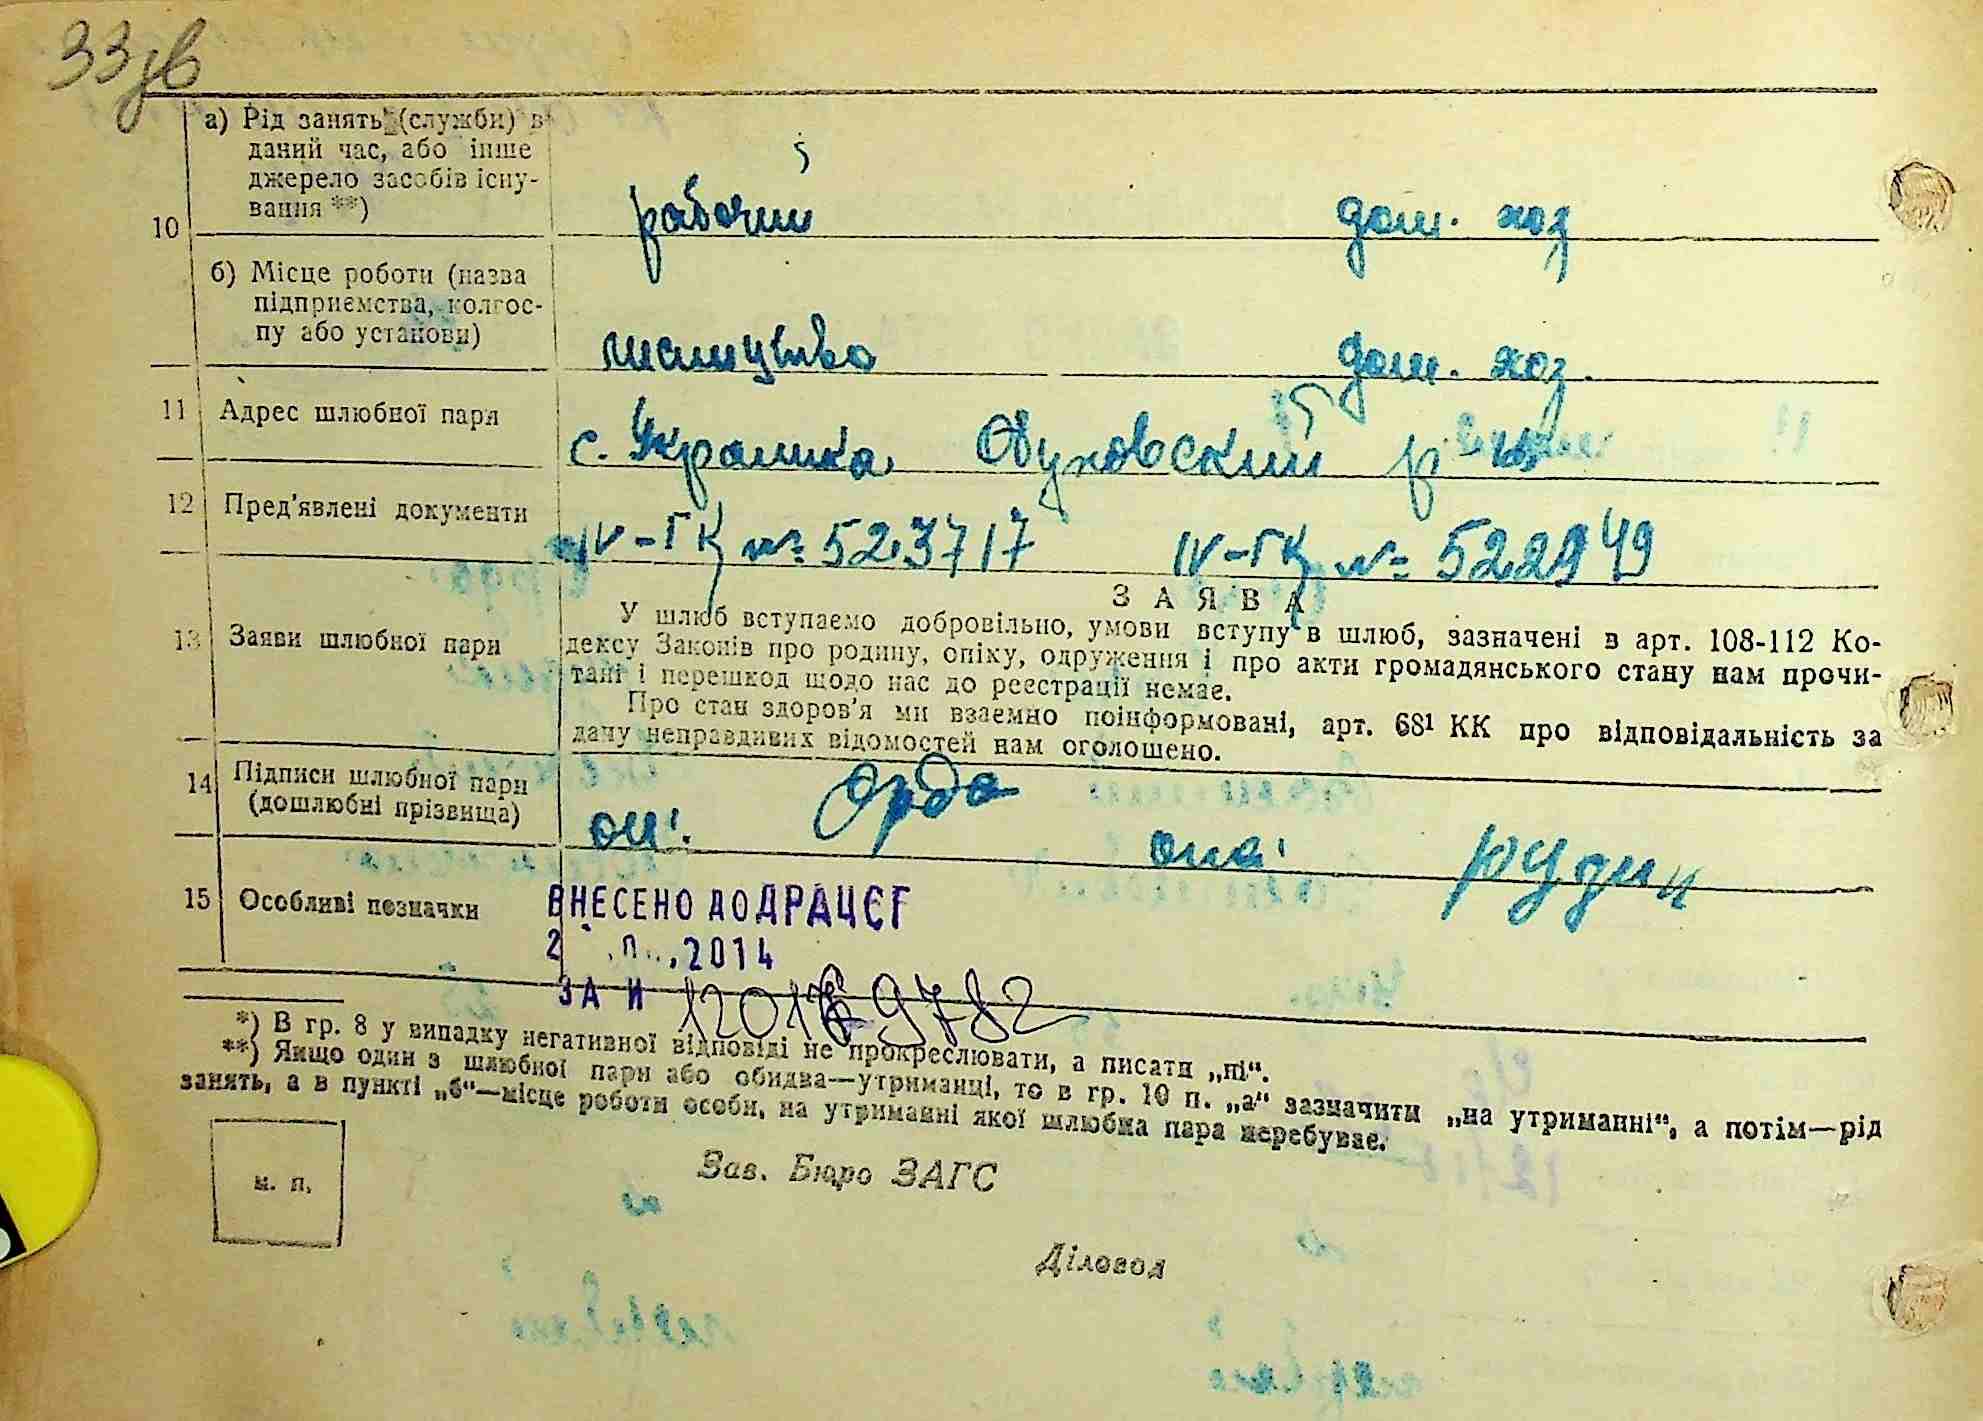 33зв
а) Рід занять (служби) в
даний час, або інше
джерело засобів існу-
вання **)
10
рабочий
дом. хоз
б) Місце роботи (назва
підприємства, колгос-
пу або установи)
лісництво
дом. хоз.
11 Адрес шлюбної пари
с. Українка Обуховский р-н
12 Пред'явлені документи
IV-ГЦ № 523717 IV-ГЦ № 522949
13 Заяви шлюбної пари
ЗАЯВА
У шлюб вступаємо добровільно, умови вступу в шлюб, зазначені в арт. 108-112 Ко-
дексу Законів про родину, опіку, одруження і про акти громадянського стану нам прочи-
тані і перешкод щодо нас до реєстрації немає.
Про стан здоров'я ми взаємно поінформовані, арт. 68¹ КК про відповідальність за
дачу неправдивих відомостей нам оголошено.
14 Підписи шлюбної пари
(дошлюбні прізвища)
он: Орда
она: Рудик
15 Особливі позначки
ВНЕСЕНО ДО ДРАЦСГ
2014
ЗА И
*) В гр. 8 у випадку негативної відповіді не прокреслювати, а писати „ні“.
**) Якщо один з шлюбної пари або обидва—утриманці, то в гр. 10 п. „а“ зазначити „на утриманні“, а потім—рід
занять, а в пункті „б“—місце роботи особи, на утриманні якої шлюбна пара перебуває.
м. п.
Зав. Бюро ЗАГС
Діловод